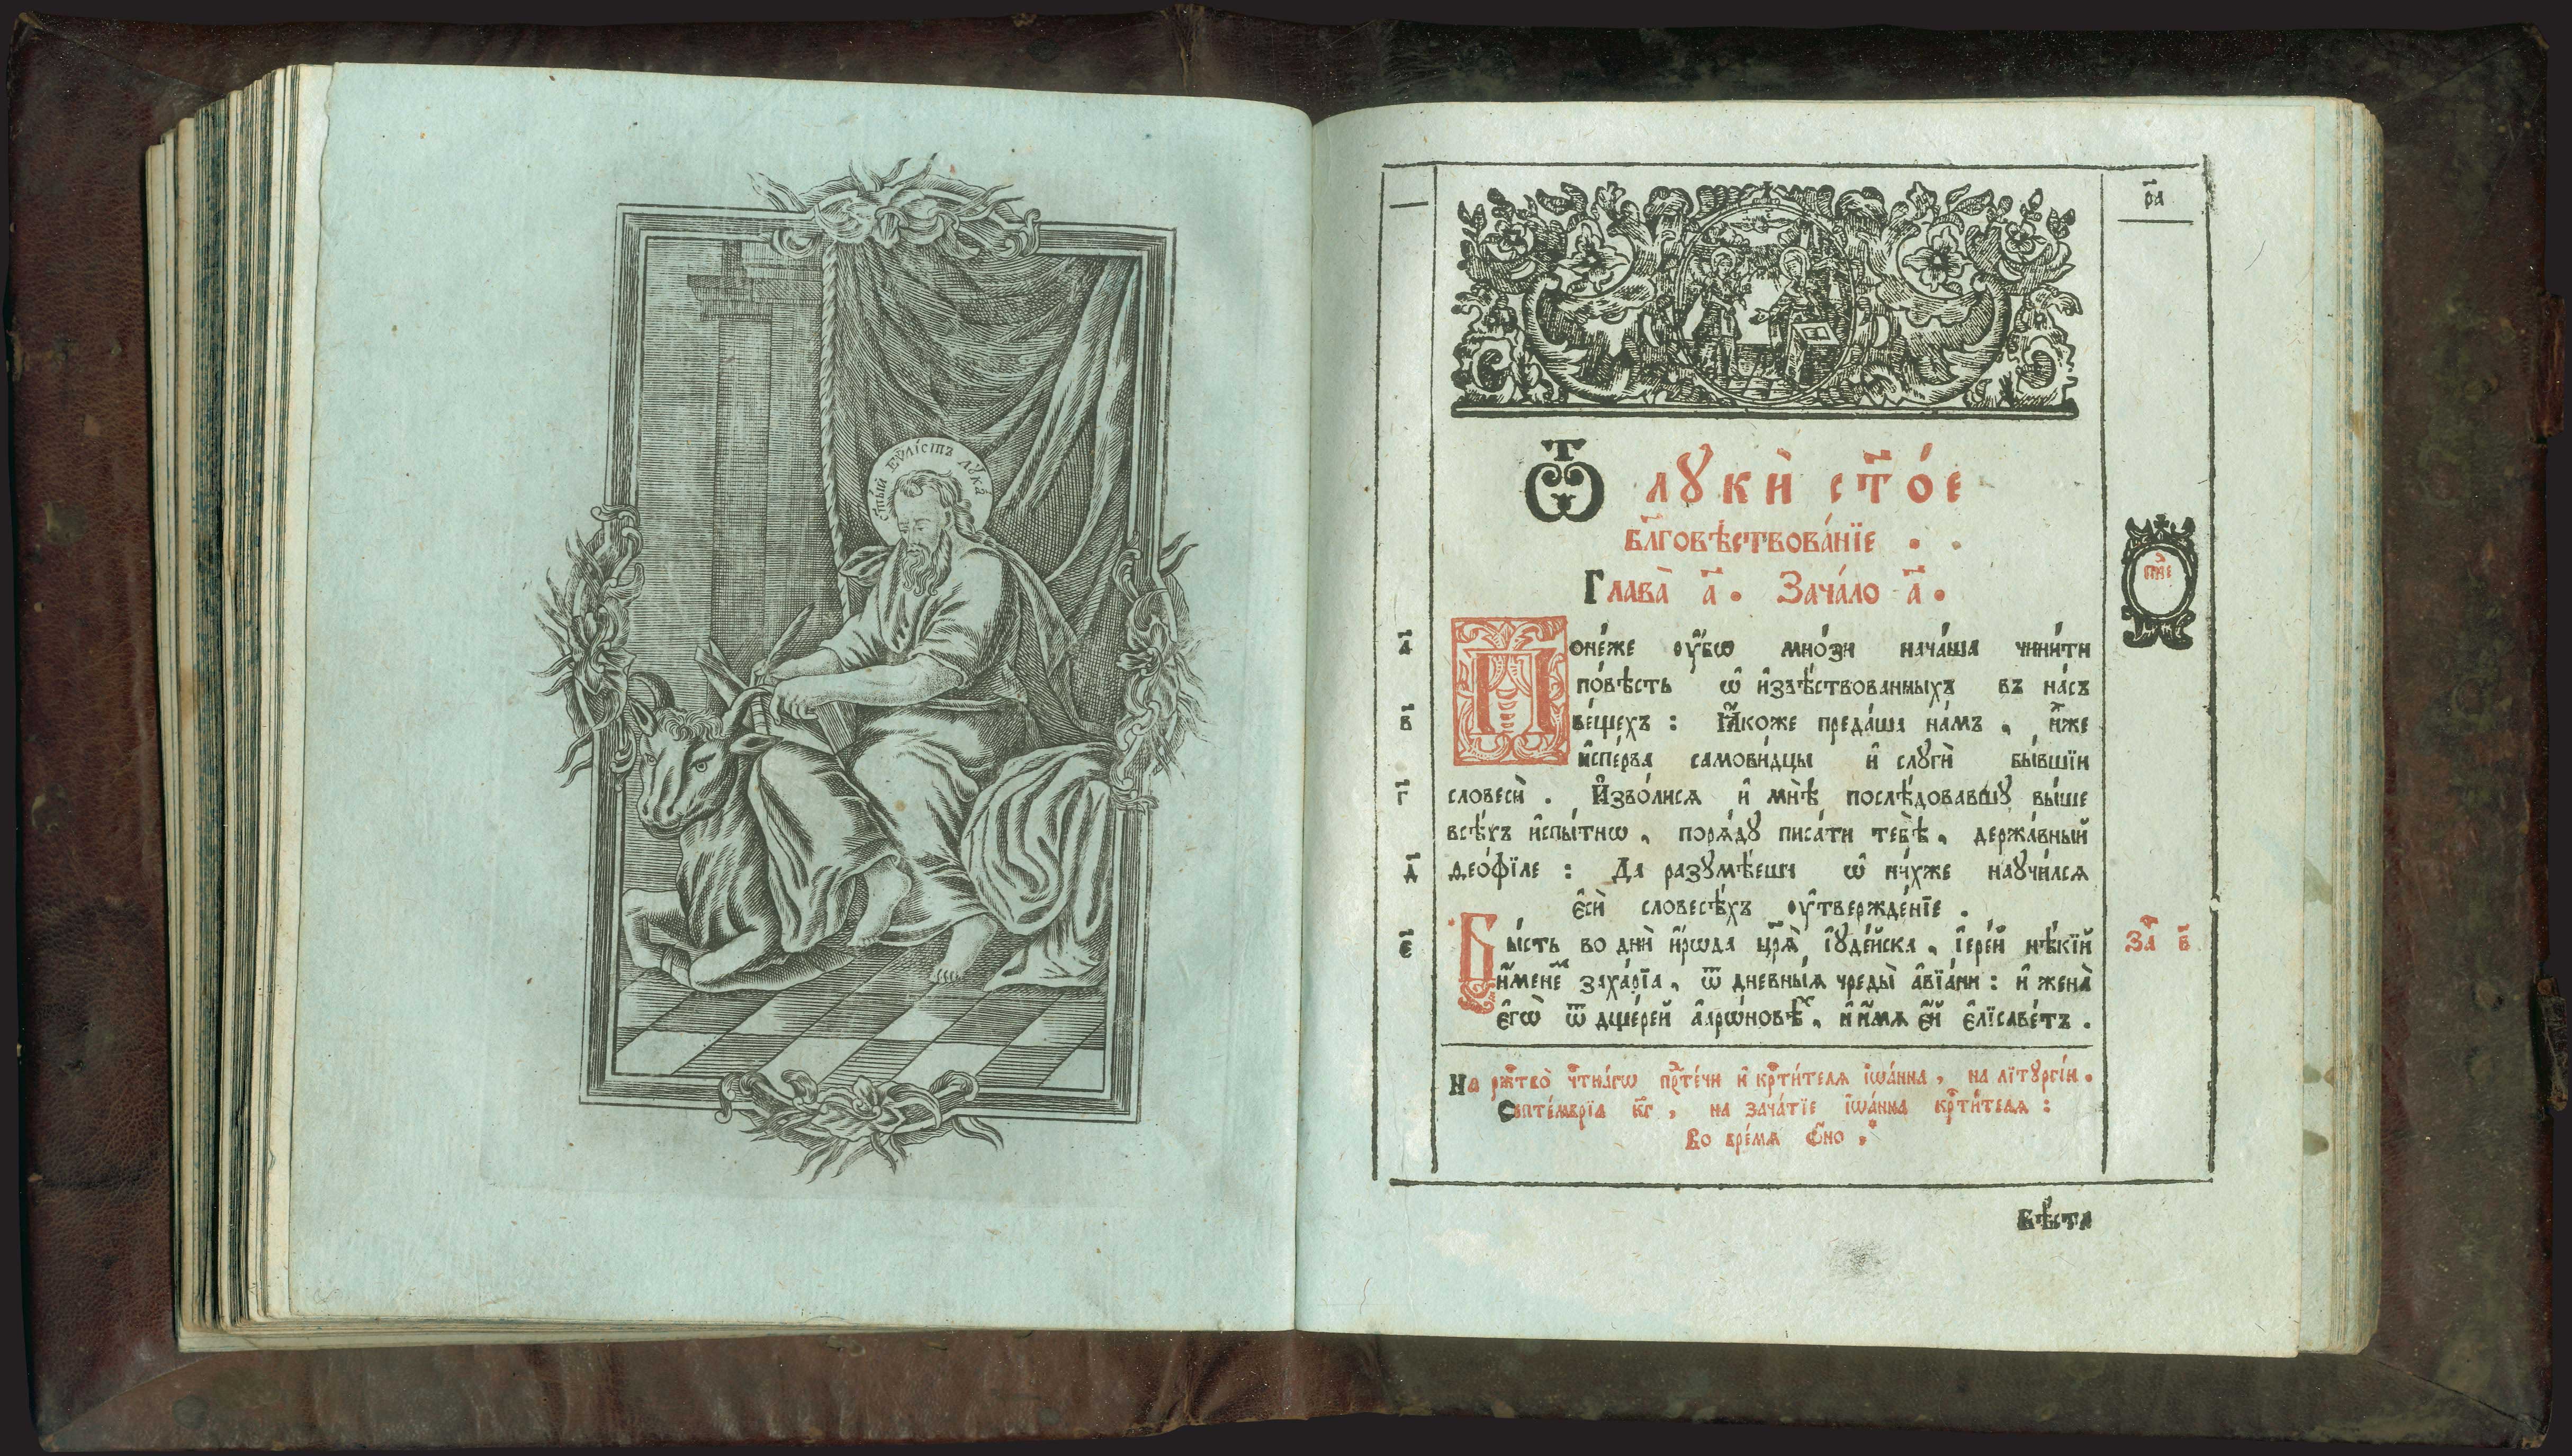 ст҃ы́й Еѵ҃лі́стъ Лꙋка̀
р҃а
Ѿ Лꙋкѝ ст҃о́е
бл҃говѣствова́нїе .
Глава̀ а҃ . Зача́ло а҃ .
а҃ Поне́же ᲂу҆́бѡ мно́зи нача́ша чини́ти
по́вѣсть ѡ҆ и҆звѣ́ствованныхъ въ на́съ
в҃ ве́щехъ : Ꙗ҆́коже преда́ша на́мъ , и҆̀же
и҆спе́рва самови́дцы и҆ слꙋгѝ бы́вшїи
г҃ словесѐ . И҆зво́лися и҆ мнѣ̀ послѣ́довавшꙋ вы́ше
всѣ́хъ и҆спы́тнѡ , поря́дꙋ писа́ти тебѣ̀ , держа́вный
д҃ Ѳео́фїле : Да разꙋмѣ́еши ѡ҆ ни́хже наꙋчи́лся
є҆сѝ словесѣ́хъ ᲂу҆твержде́нїе .
є҃ Бы́сть во днѝ и҆́рѡда цр҃ѧ̀ і҆ꙋде́йска , і҆ере́й нѣ́кїй За҃ в҃
и҆́менемъ заха́рїа , ѿ дневны́ѧ чреды̀ а҆вїа́ни : и҆ жена̀
є҆гѡ̀ ѿ дще́рей а҆арѡ́новѣхъ , и҆ и҆́мѧ є҆́й є҆лїсаве́тъ .
На рж҇тво̀ ч҇тна́гѡ пр҇те́чи и҆ кр҇ти́телѧ і҆ѡа́нна , на лїтꙋргі́и .
Септе́мврїа к҃г , на зача́тїе і҆ѡа́нна кр҇ти́телѧ :
Во вре́мѧ ѻ҆́но ,
бѣ́ста